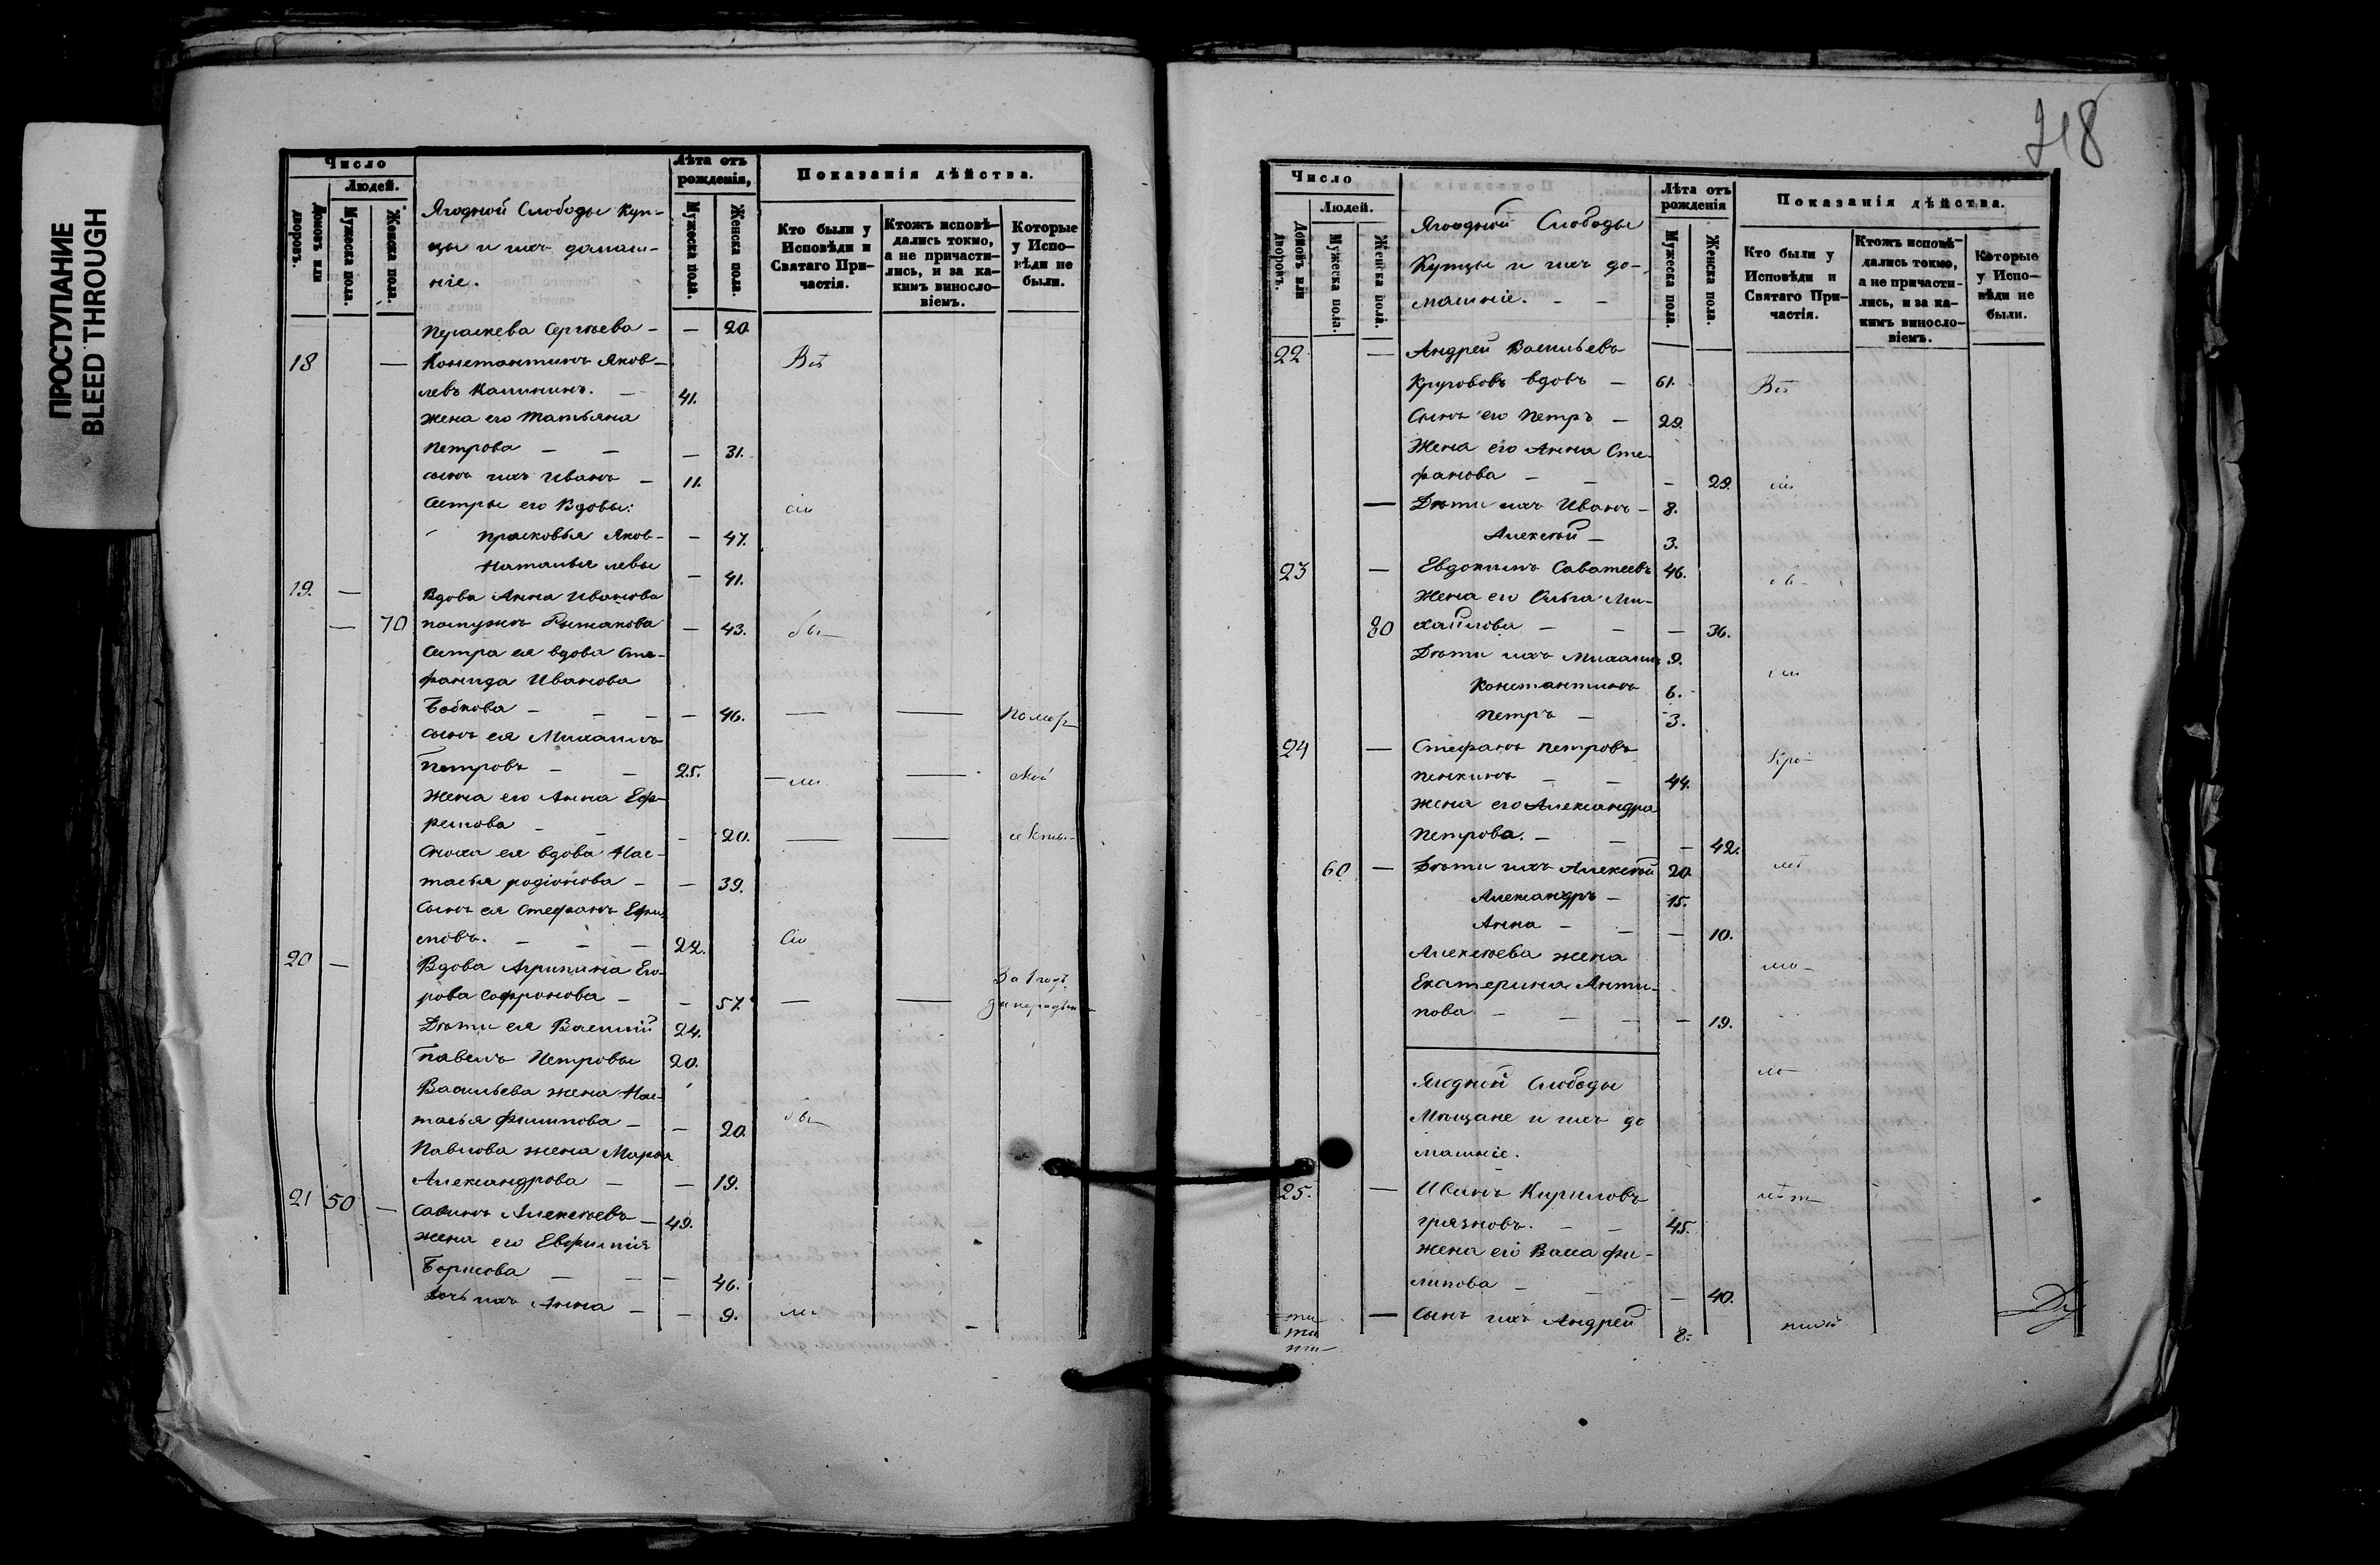 ПРОСТУПАНИЕ
BLEED THROUGH
Число
Людей.
Домовъ или дворовъ.
Мужеска пола.
Женска пола.
Ягодной Слободы Куп-
цы и ихъ домаш-
ніе.
Лѣта отъ рожденія,
Мужеска пола.
Женска пола.
Показанія дѣйства.
Кто были у Исповѣди и Святаго При-частія.
Ктожъ исповѣ-дались токмо, а не причасти-лись, и за ка-кимъ винословіемъ.
Которые у Испо-вѣди не были.
Параскева Сергѣева — — 20.
18 — Константинъ Яков- Всѣ
левъ Калининъ. — 41.
жена его Татьяна
Петрова — — — 31.
сынъ ихъ Иванъ — 11.
Сестры его Вдовы: сіи
Прасковья Яков- — 47.
Наталья левы — 41.
19. — Вдова Анна Иванова
— 70 помужѣ Рыжакова — 43. бы—
Сестра ея вдова Сте-
фанида Иванова
Бобкова — — — — 46. — — Помор—
сынъ ея Михаилъ
Петровъ — — 25. — ли — ской
Жена его Анна Еф-
ремова — — — 20. — — секты—
Сноха ея вдова Нас-
тасья Родіонова — — 39.
Сынъ ея Стефанъ Ефи-
мовъ. — — — 22. Сіи
20 — Вдова Агрипина Его-
рова Софронова — — 57. — — За 1 годъ
Дѣти ея Василій 24.
Павелъ Петровы 20.
Васильева жена Нас-
тасья Филипова — — 20. бы—
Павлова жена Марья
Александрова — — 19.
21 50 — Савинъ Алексѣевъ — 49.
жена его Евфимія
Борисова — — — 46.
дочь ихъ Анна — — 9. ли
Число
Людей.
Домовъ или дворовъ.
Мужеска пола.
Женска пола.
Ягодной Слободы
Купцы и ихъ до-
машніе. — —
Лѣта отъ рожденія
Мужеска пола.
Женска пола.
Показанія дѣйства.
Кто были у Исповѣди и Святаго При-частія.
Ктожъ исповѣ-дались токмо, а не причасти-лись, и за ка-кимъ винословіемъ.
Которые у Испо-вѣди не были.
22 — Андрей Васильевъ
вдовъ — 61. Всѣ
Сынъ его Петръ — 29.
Жена его Анна Сте-
фанова — — — 29. сіи
— Дѣти ихъ Иванъ — 8.
Алексѣй — 3.
23 — Евдокимъ Саватеевъ 46.
Жена его Ольга Ми-
80 хайлова — — — 36.
Дѣти ихъ Михаилъ 9.
Константинъ 6.
Петръ — 3.
24 — Стефанъ Петровъ
Пенкинъ — — 44.
жена его Александра
Петрова. — — — 42.
60 — Дѣти ихъ Алексѣй 20.
Александръ — 15.
Анна — — — 10.
Алексѣева жена
Екатерина Анти-
пова — — — — 19.
Ягодной Слободы
Мѣщане и ихъ до
машніе.
25. — Иванъ Кириловъ
Грязновъ. — — 45.
жена его Васса Фи-
липова — — — 40.
— Сынъ ихъ Андрей 8.